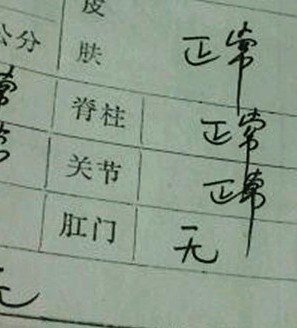 皮
公分 肤 正常
常 脊柱 正常
常 关节 正常
肛门 无
无